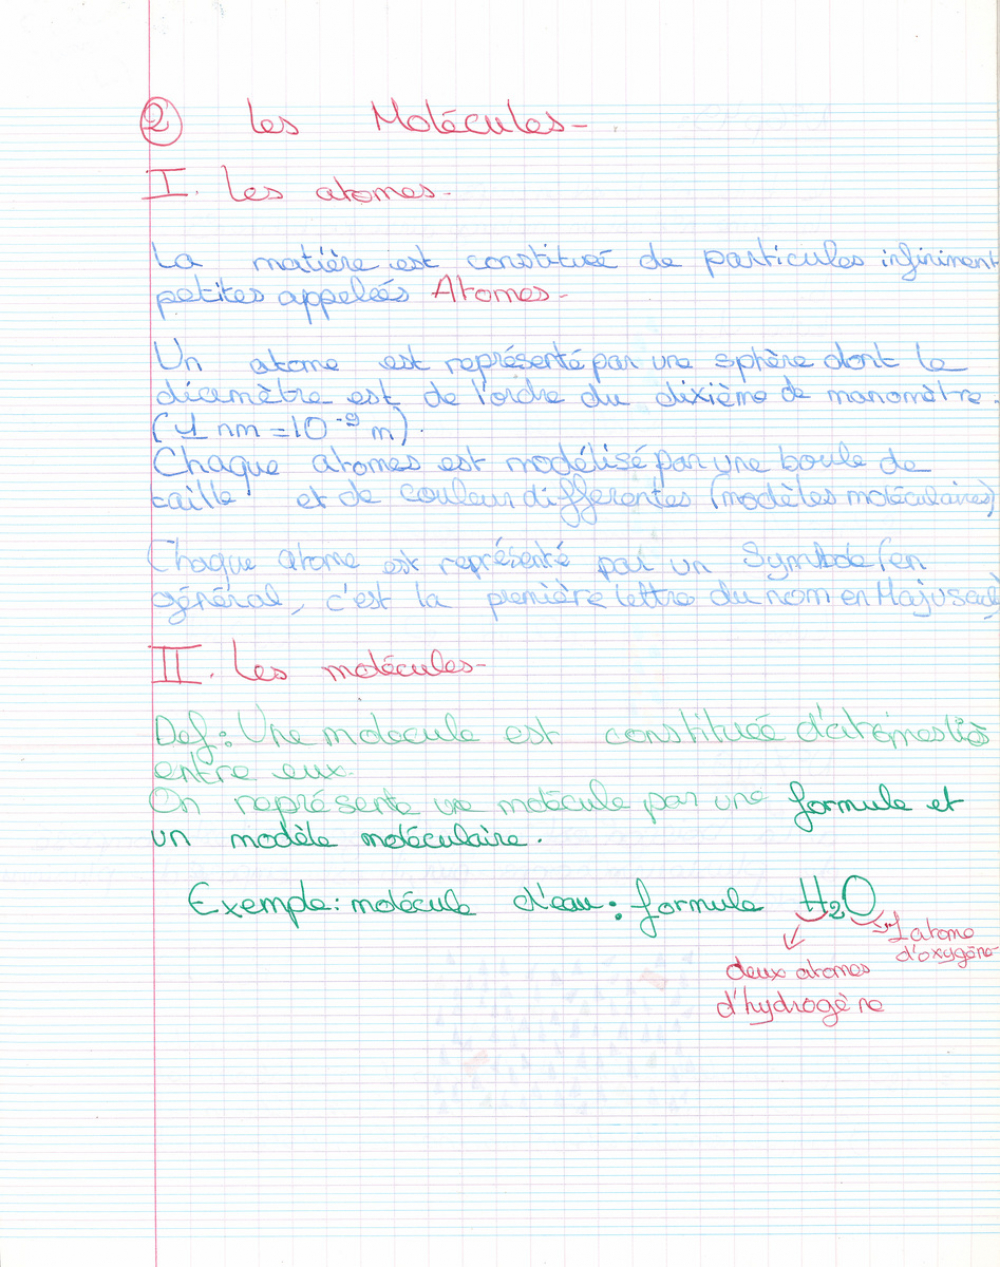 ② Les Molécules-
I. Les atomes-
La matière est constituée de particules infiniment
petites appelées Atomes-
Un atome est représenté par une sphère dont le
diamètre est de l'ordre du dixième de manomètre.
(1 nm = 10⁻⁹ m).
Chaque atomes est modélisé par une boule de
taille et de couleur differentes (modèles moléculaires)
Chaque atome est représenté par un Symbole (en
général, c'est la première lettre du nom en Majuscule)
II. Les molécules-
Def: Une molécule est constituée d'atomes liés
entre eux.
On représente une molécule par une formule et
un modèle moléculaire.
Exemple: molécule d'eau: formule H₂O
1 atome
d'oxygène
deux atomes
d'hydrogène